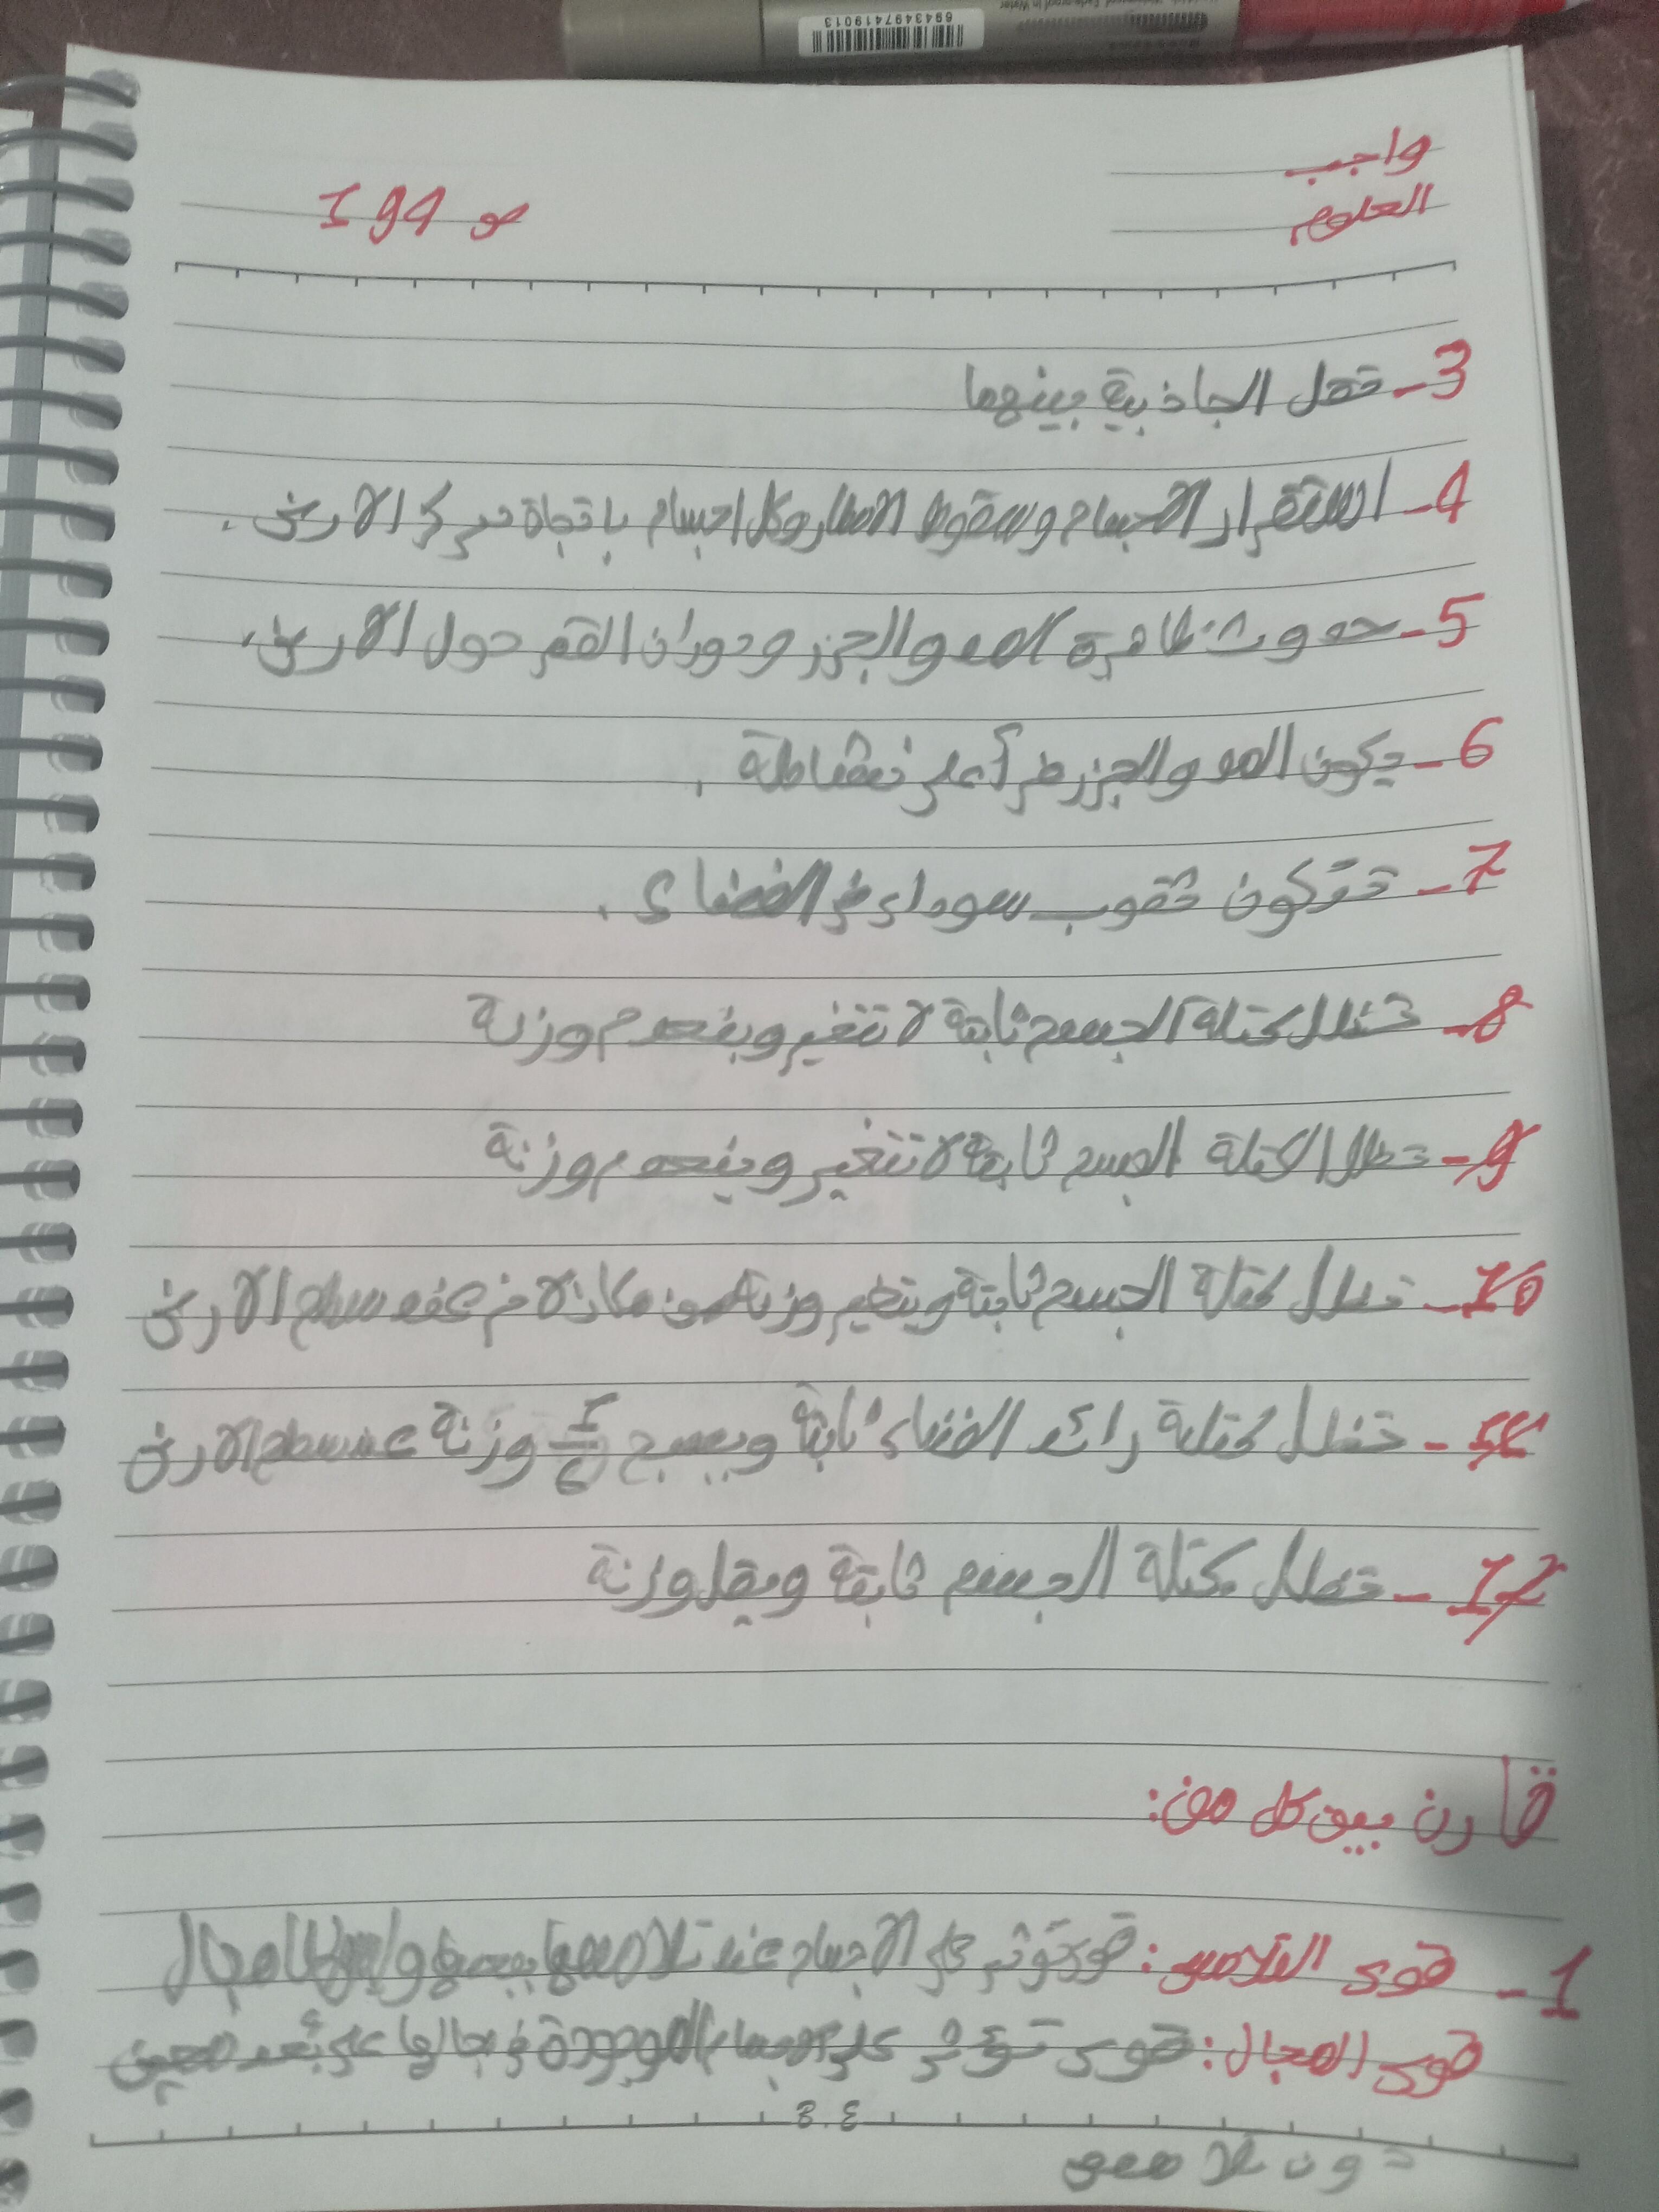 6943497419013
واجب
العلوم
ص 194
3- تقل الجاذبية بينهما
4- استقرار الاجسام وسقوط الامطار وكل اجسام باتجاة مركز الارض.
5- حدوث ظاهرة المد والجزر ودوران القمر حول الارض.
6- يكون المد والجزر في أعلى نقطة.
7- تتكون ثقوب سوداء في الفضاء.
8- تظل كتلة الجسم ثابتة لا تتغير وينعدم وزنة
9- تظل الكتلة الجسم ثابتة لا تتغير وينعدم وزنة
10- تظل كتلة الجسم ثابتة ويتغير وزنة من مكان لاخر عند سطح الارض
- تظل كتلة رائد الفضاء ثابتة ويصبح 1/6 وزنة عند سطح الارض
12- تظل كتلة الجسم ثابتة ويقل وزنة
قارن بين كل من:
1- قوى التلامس: قوى تؤثر على الاجسام عند تلامسها ببعضها وليس لها مجال
قوى المجال: قوى تؤثر على الاجسام الموجودة في مجالها على بُعد معين
دون تلامس